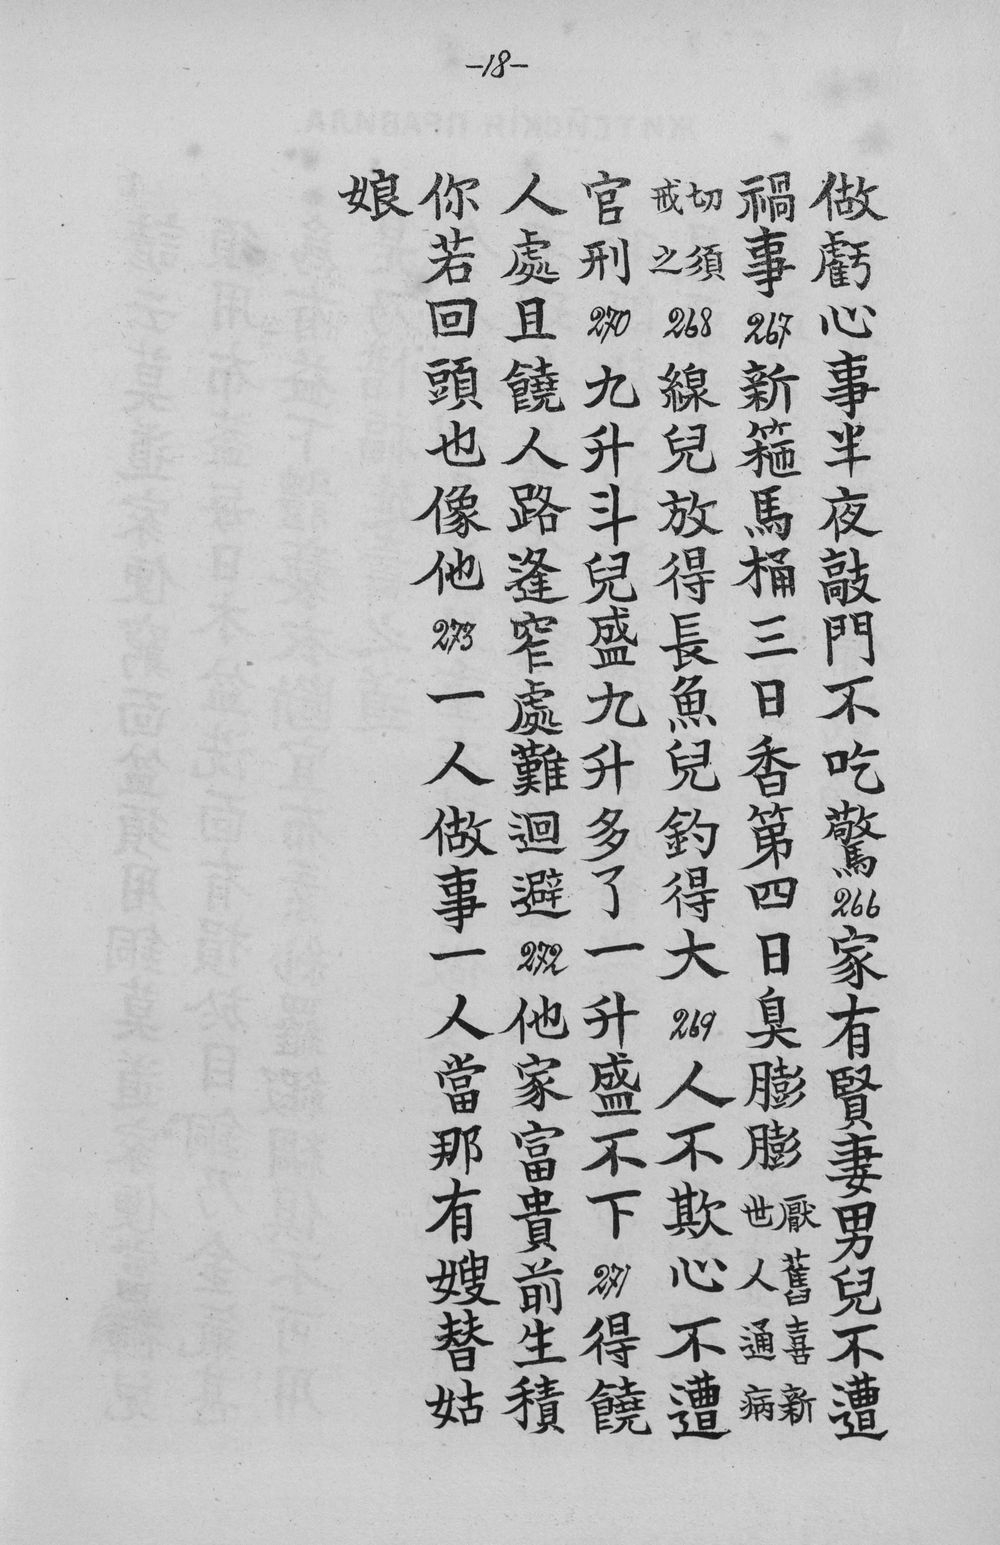 -18-
做虧心事半夜敲門不吃驚266家有賢妻男兒不遭
禍事267新箍馬桶三日香第四日臭膨膨厭舊喜新世人通病
切須戒之268線兒放得長魚兒釣得大269人不欺心不遭
官刑270九升斗兒盛九升多了一升盛不下271得饒
人處且饒人路逢窄處難迴避272他家富貴前生積
你若回頭也像他273一人做事一人當那有嫂替姑
娘